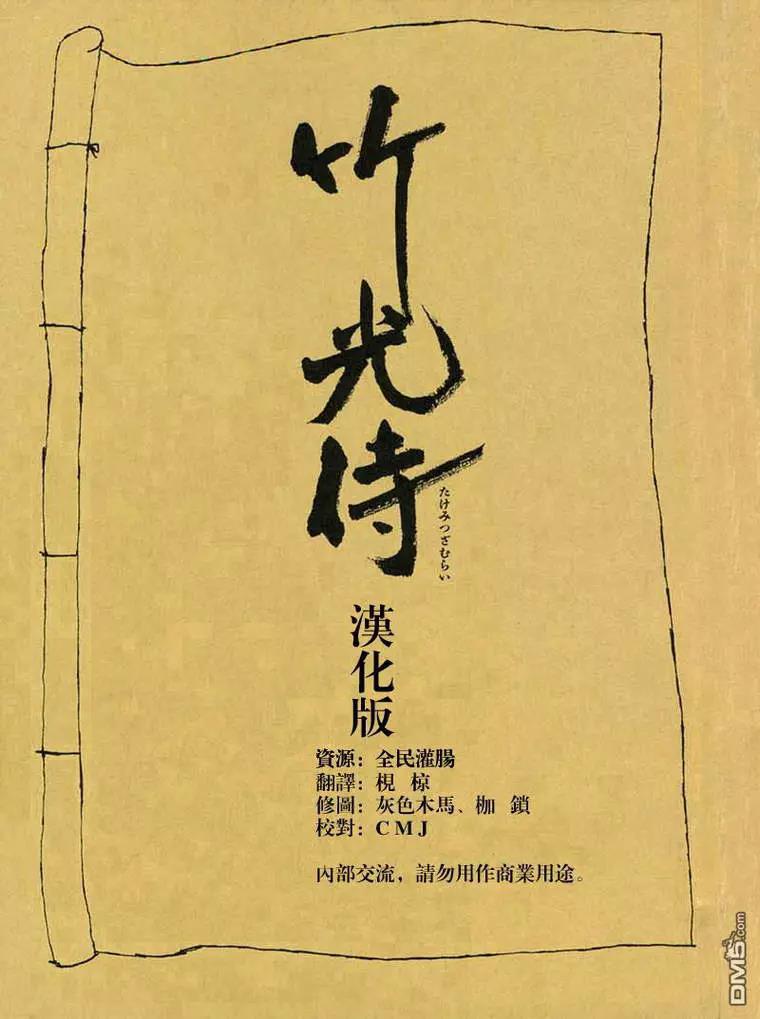 竹光侍
たけみつざむらい
漢化版
資源：全民灌腸
翻譯：梘 椋
修圖：灰色木馬、枷 鎖
校對：CMJ
內部交流，請勿用作商業用途。
DM5.com